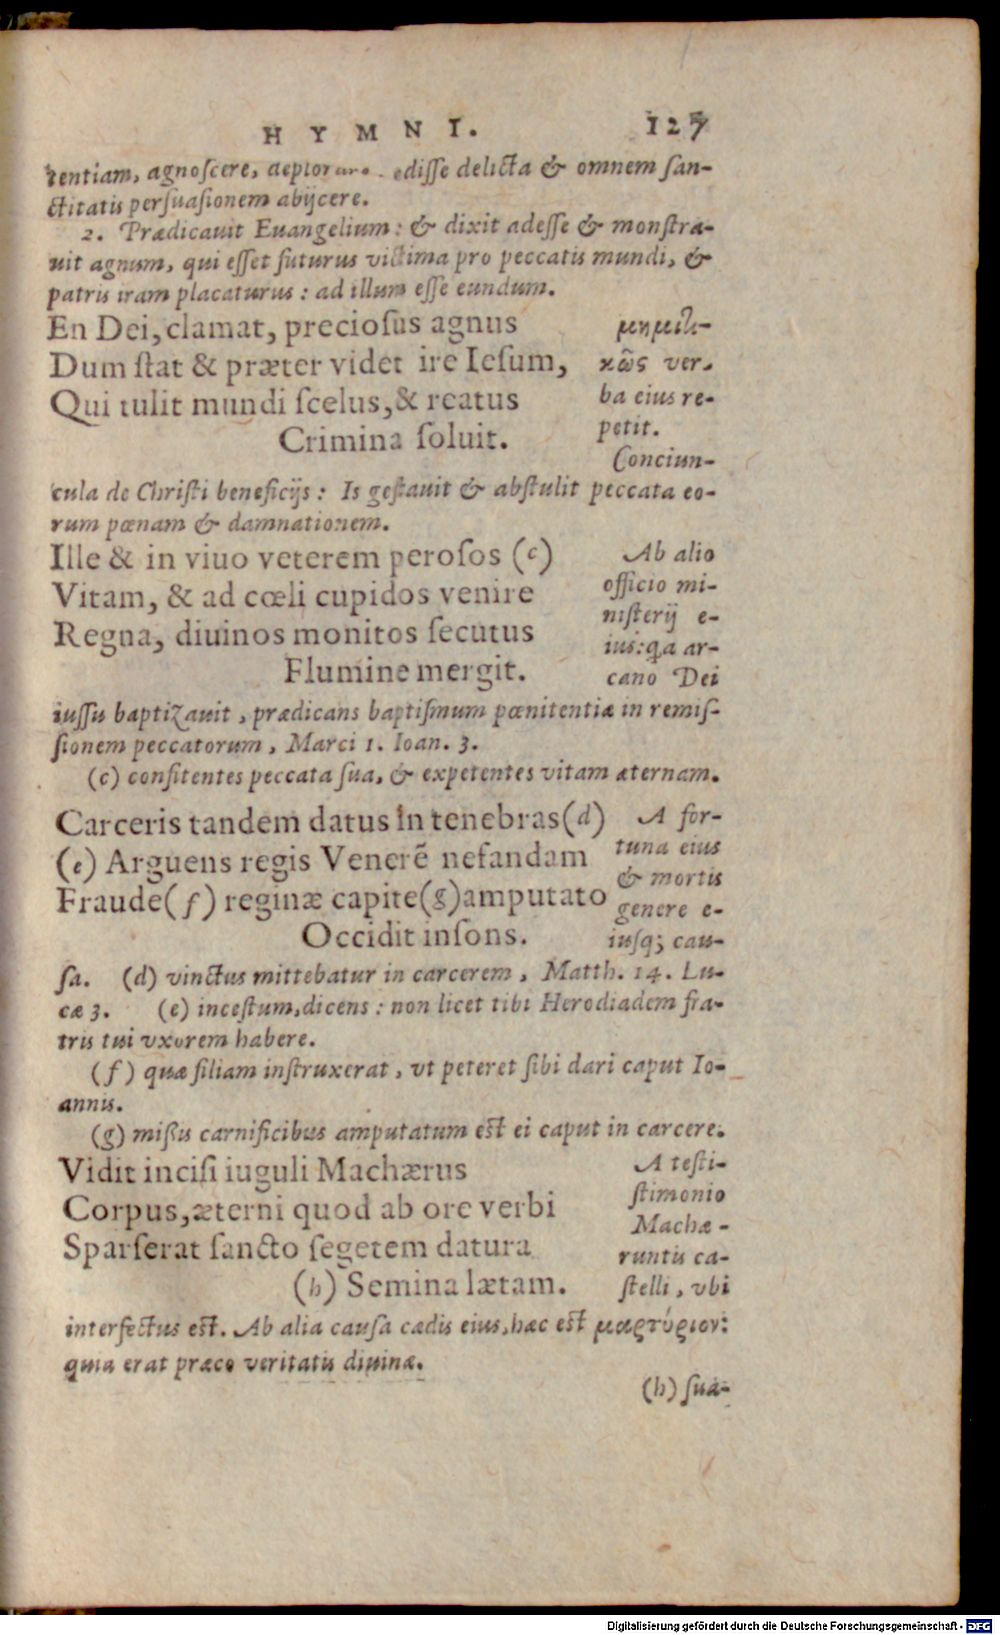 HYMNI. 127
tentiam, agnoscere, deplorare edisse delicta & omnem san-
ctitatis persuasionem abijcere.
2. Prædicauit Euangelium: & dixit adesse & monstra-
uit agnum, qui esset futurus victima pro peccatis mundi, &
patris iram placaturus: ad illum esse eundum.
En Dei, clamat, preciosus agnus
Dum stat & præter videt ire Iesum,
Qui tulit mundi scelus, & reatus
Crimina soluit.
μημιτι-
κῶς ver-
ba eius re-
petit.
Conciun-
cula de Christi beneficijs: Is gestauit & abstulit peccata eo-
rum pœnam & damnationem.
Ille & in viuo veterem perosos (c)
Vitam, & ad cœli cupidos venire
Regna, diuinos monitos secutus
Flumine mergit.
Ab alio
officio mi-
nisterij e-
ius: qa ar-
cano Dei
iussu baptizauit, prædicans baptismum pœnitentiæ in remis-
sionem peccatorum, Marci 1. Ioan. 3.
(c) confitentes peccata sua, & expetentes vitam æternam.
Carceris tandem datus in tenebras (d)
(e) Arguens regis Venerē nefandam
Fraude (f) reginæ capite (g) amputato
Occidit insons.
A for-
tuna eius
& mortis
genere e-
iusq; cau-
sa. (d) vinctus mittebatur in carcerem, Matth. 14. Lu-
cæ 3. (e) incestum, dicens: non licet tibi Herodiadem fra-
tris tui vxorem habere.
(f) quæ filiam instruxerat, vt peteret sibi dari caput Io-
annis.
(g) missus carnificibus amputatum est ei caput in carcere.
Vidit incisi iuguli Machærus
Corpus, æterni quod ab ore verbi
Sparserat sancto segetem datura
(h) Semina lætam.
A testi-
stimonio
Machæ-
runtis ca-
stelli, vbi
interfectus est. Ab alia causa cædis eius, hæc est μαρτύριον:
quia erat præco veritatis diuinæ.
(h) sua-
Digitalisierung gefördert durch die Deutsche Forschungsgemeinschaft - DFG